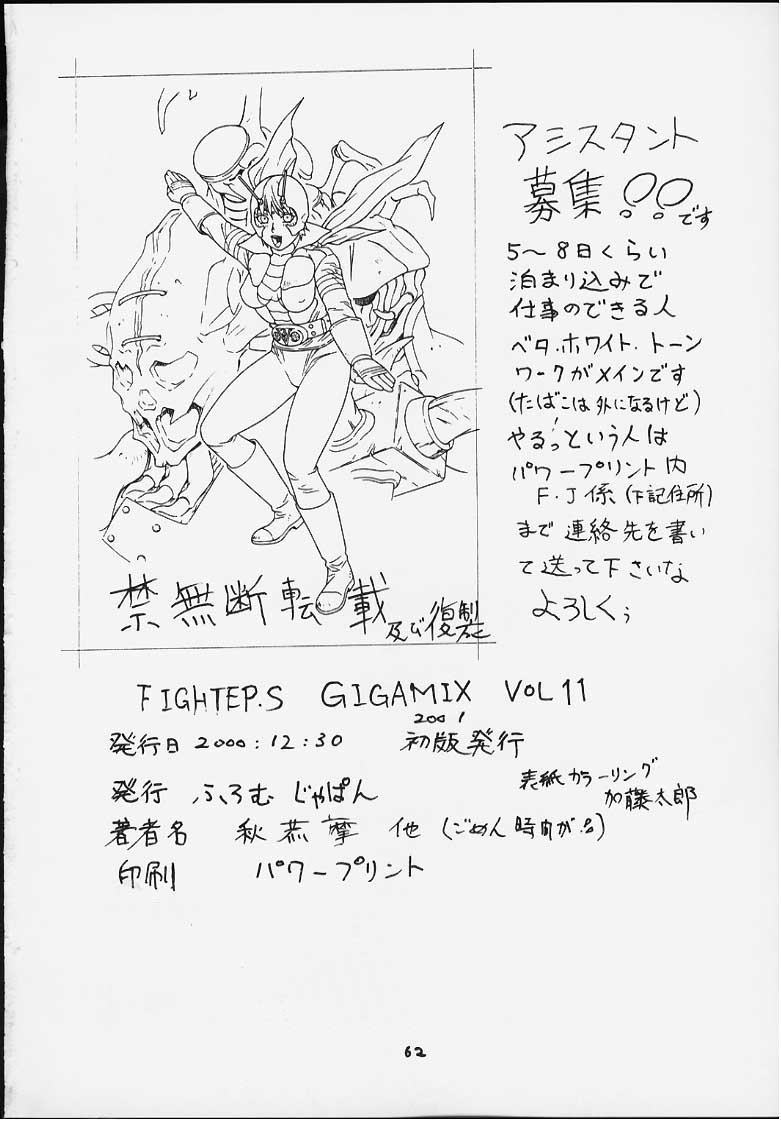 アシスタント
募集!!です
5〜8日くらい
泊まり込みで
仕事のできる人
ベタ.ホワイト.トーン
ワークがメインです
(たばこは外になるけど)
やるっ!という人は
パワープリント内
F.J係(下記住所)
まで連絡先を書い
て送って下さいな
よろしくぅ
禁無断転載
及び復製
FIGHTER.S GIGAMIX VOL 11
発行日 2000:12:30 2001 初版発行
発行 ふろむじゃぱん
表紙カラーリング
加藤太郎
著者名 秋恭摩 他 (ごめん時間が
印刷 パワープリント
62